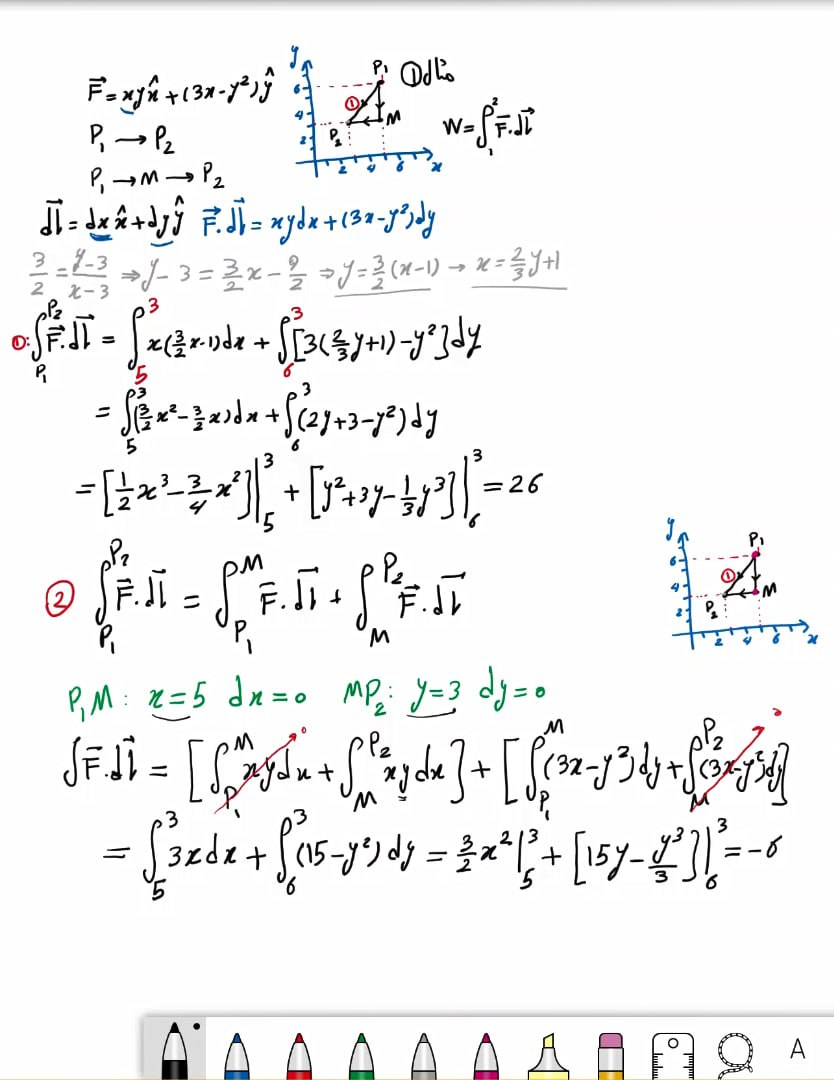 مثال ①
F⃗ = xy x̂ + (3x - y²) ŷ
P₁ → P₂
P₁ → M → P₂
y 6 4 2 2 4 6 x P₁ M P₂ ①
W = ∫₁² F⃗.dl⃗
dl⃗ = dx x̂ + dy ŷ F⃗.dl⃗ = xydx + (3x - y²)dy
3/2 = (y-3)/(x-3) ⇒ y - 3 = 3/2 x - 9/2 ⇒ y = 3/2 (x-1) → x = 2/3 y + 1
①: ∫_P₁^P₂ F⃗.dl⃗ = ∫₅³ x(3/2 x-1)dx + ∫₆³ [3(2/3 y+1) - y²]dy
= ∫₅³ (3/2 x² - 3/2 x)dx + ∫₆³ (2y+3-y²)dy
= [1/2 x³ - 3/4 x²]|₅³ + [y² + 3y - 1/3 y³]|₆³ = 26
② ∫_P₁^P₂ F⃗.dl = ∫_P₁^M F⃗.dl + ∫_M^P₂ F⃗.dl
y 6 4 2 2 4 6 x P₁ M P₂ ①
P₁M: x=5 dx=0 MP₂: y=3 dy=0
∫F⃗.dl⃗ = [∫_P₁^M xydx + ∫_M^P₂ xydx] + [∫_P₁^M (3x-y²)dy + ∫_M^P₂ (3x-y²)dy]
= ∫₅³ 3xdx + ∫₆³ (15-y²)dy = 3/2 x²|₅³ + [15y - y³/3]|₆³ = -6
A